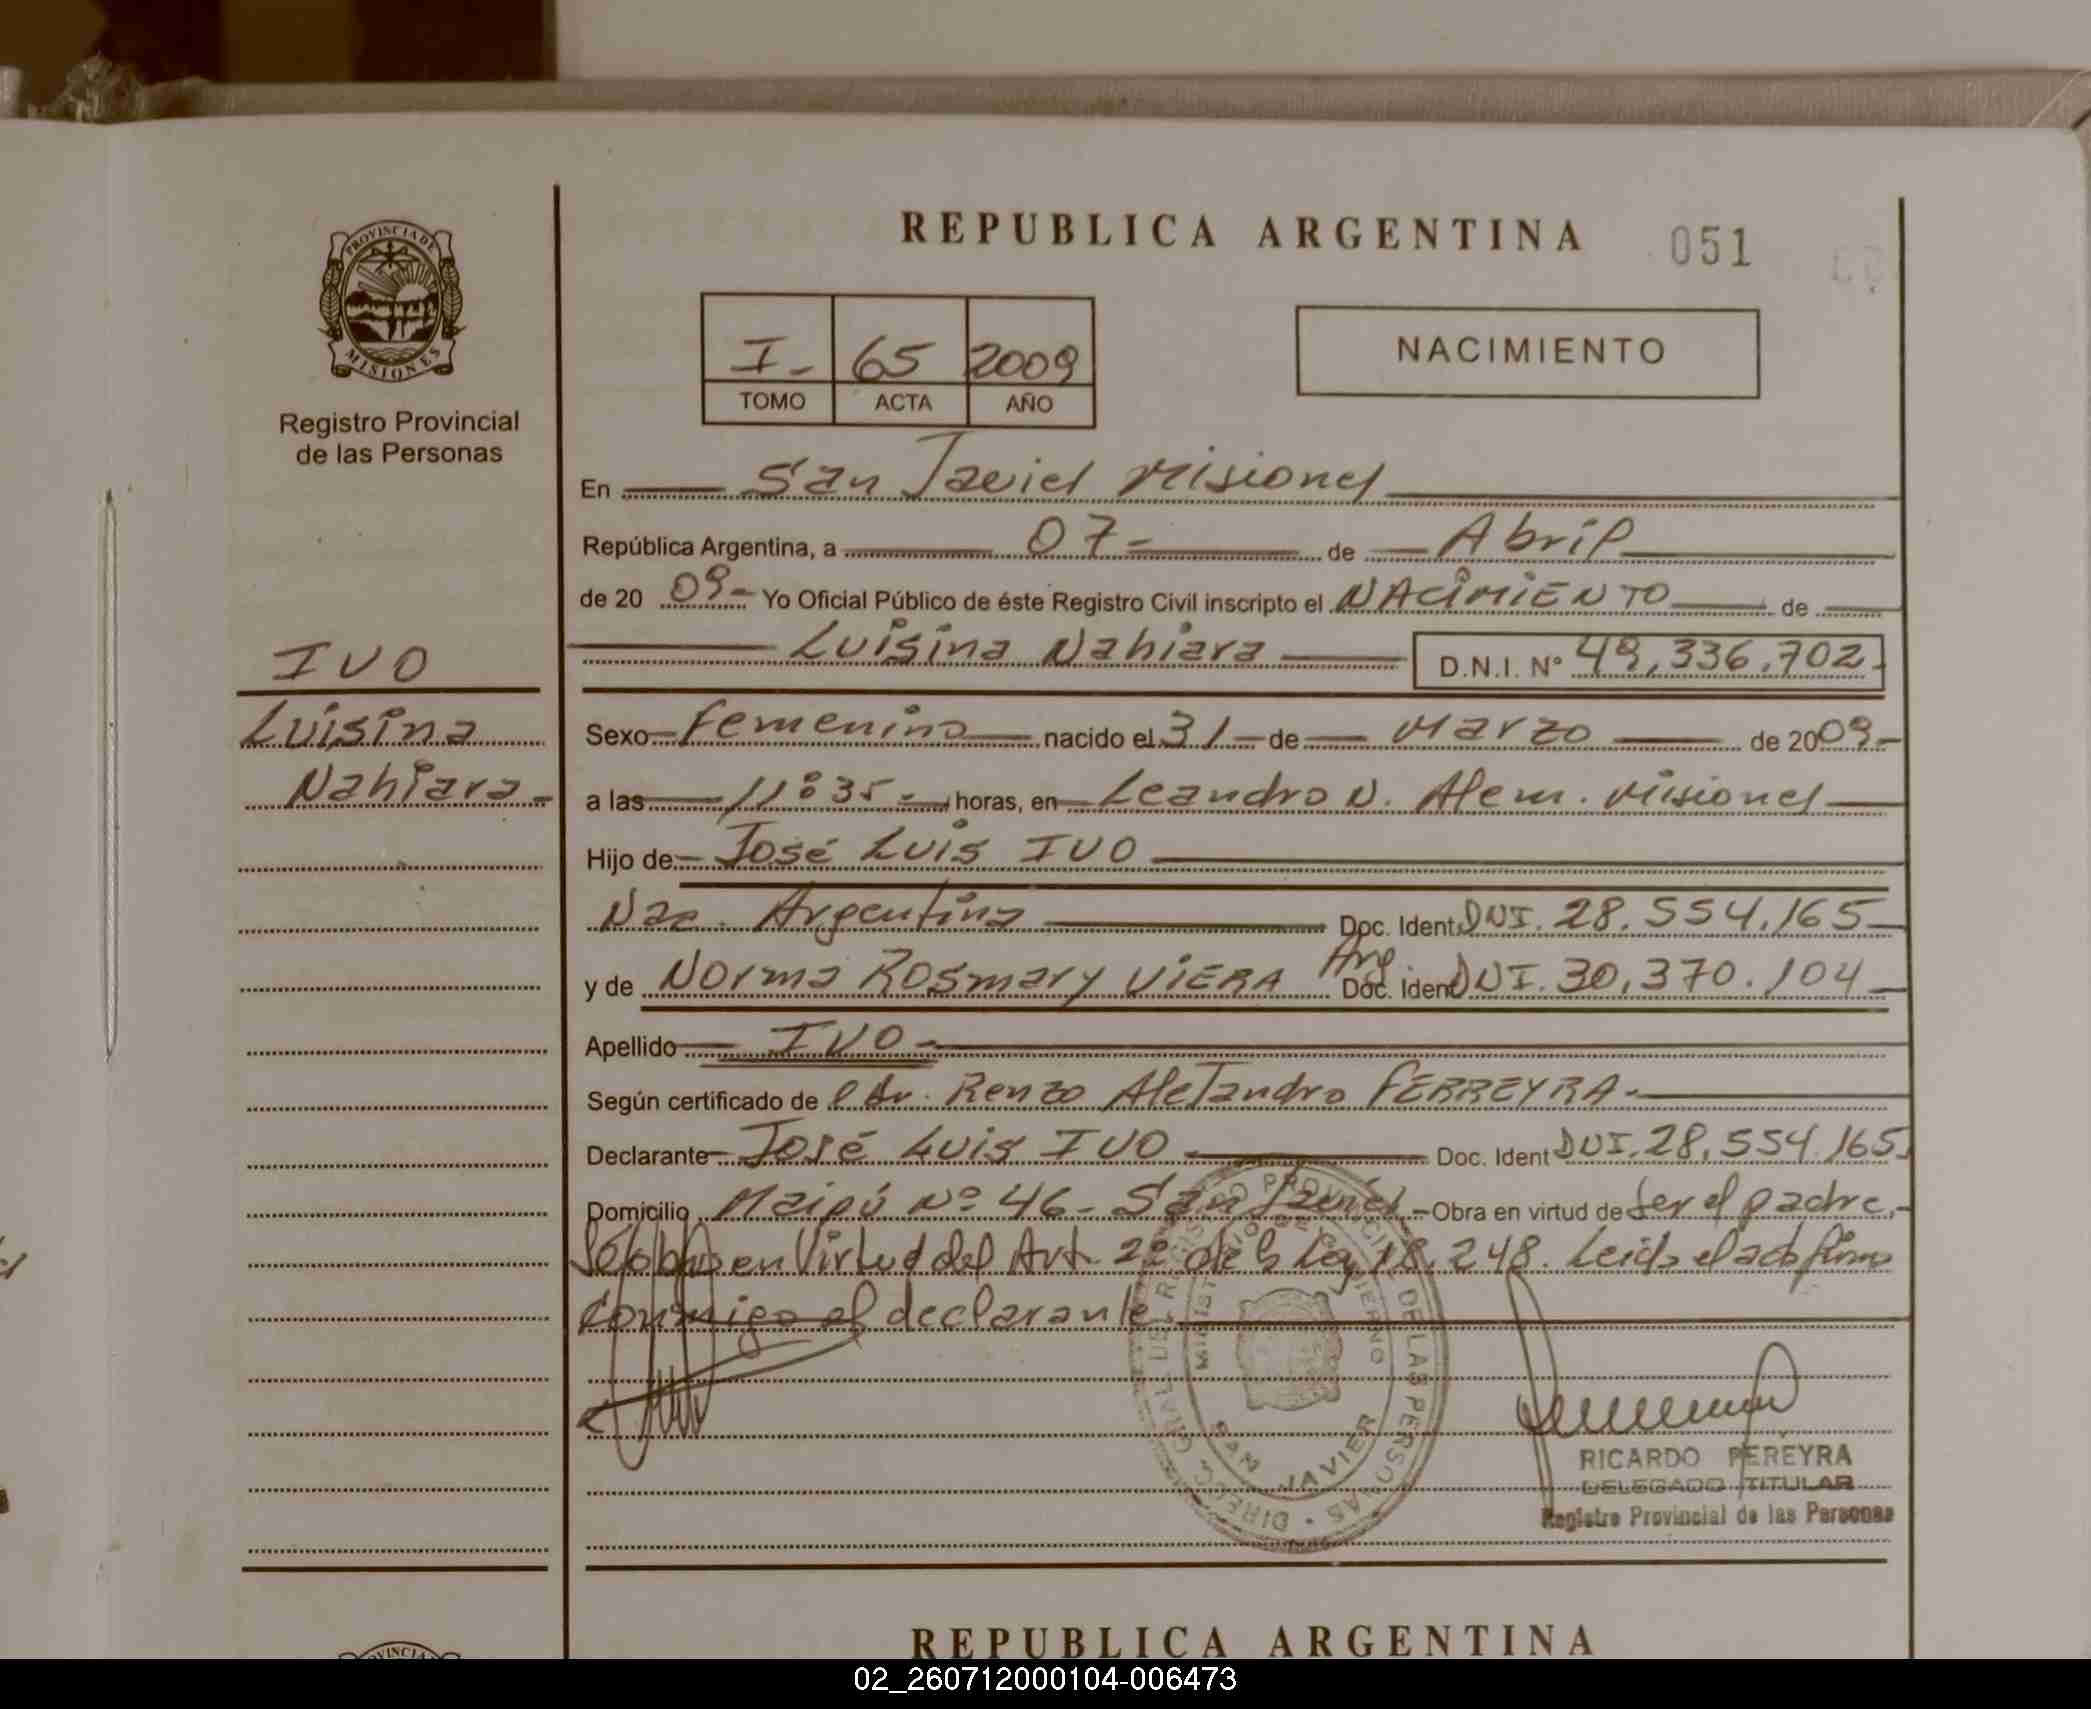 REPUBLICA ARGENTINA 051
PROVINCIA DE
MISIONES
Registro Provincial
de las Personas
I- 65 2009
TOMO ACTA AÑO
NACIMIENTO
En San Javier Misiones
República Argentina, a 07- de Abril
de 20 09- Yo Oficial Público de éste Registro Civil inscripto el NACIMIENTO de
Luisina Nahiara D.N.I. Nº 49,336,702-
IVO
Luisina
Nahiara-
Sexo Femenino nacido el 31 de Marzo de 2009-
a las 11:35- horas, en Leandro N. Alem. Misiones
Hijo de José Luis IVO
Nac. Argentina Doc. Ident DNI. 28.554.165
y de Norma Rosmary VIERA Arg. Doc. Ident DNI. 30,370.104
Apellido IVO-
Según certificado de el Dr. Renzo Alejandro FERREYRA-
Declarante José Luis IVO Doc. Ident DNI. 28,554.165
Domicilio Maipú Nº 46- San Javier - Obra en virtud de ser el padre,-
en Virtud del Art. 2º de la Ley 18.248. Leida el acta firma
conmigo el declarante
DIRECC. GRAL. DEL REGISTRO PROVINCIAL DE LAS PERSONAS
MINISTERIO DE GOBIERNO
SAN JAVIER
RICARDO PEREYRA
DELEGADO TITULAR
Registro Provincial de las Personas
REPUBLICA ARGENTINA
02_260712000104-006473